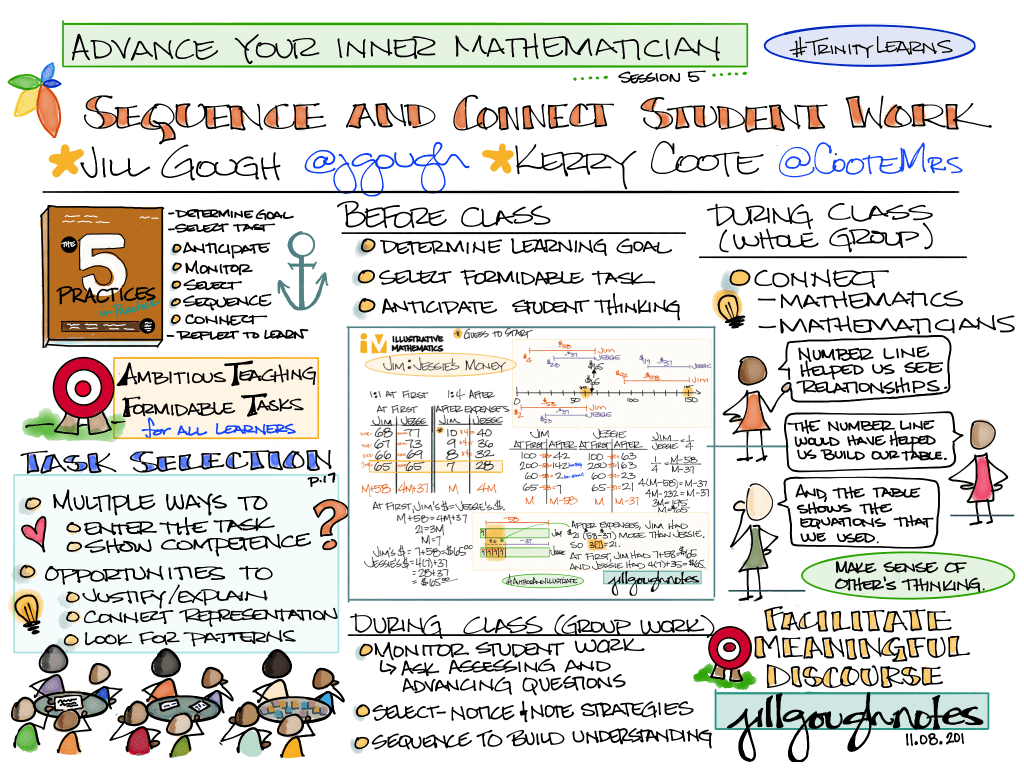 ADVANCE YOUR INNER MATHEMATICIAN
#TRINITYLEARNS
SESSION 5
SEQUENCE AND CONNECT STUDENT WORK
JILL GOUGH @jgough KERRY COOTE @COOTEMRS
THE
5
PRACTICES
in Practice
- DETERMINE GOAL
- SELECT TASK
ANTICIPATE
MONITOR
SELECT
SEQUENCE
CONNECT
- REFLECT TO LEARN
AMBITIOUS TEACHING
FORMIDABLE TASKS
for ALL LEARNERS
TASK SELECTION
p.17
MULTIPLE WAYS TO
ENTER THE TASK
SHOW COMPETENCE
?
OPPORTUNITIES TO
JUSTIFY/EXPLAIN
CONNECT REPRESENTATION
LOOK FOR PATTERNS
BEFORE CLASS
DETERMINE LEARNING GOAL
SELECT FORMIDABLE TASK
ANTICIPATE STUDENT THINKING
IM ILLUSTRATIVE
MATHEMATICS
* GUESS TO START
JIM : JESSIE'S MONEY
1:1 AT FIRST 1:4 AFTER
AT FIRST AFTER EXPENSES
JIM JESSE JIM JESSE
68 77 10 40
67 73 9 36
66 69 8 32
65 65 7 28
M+58 4M+37 M 4M
AT FIRST, JIM'S $ = JESSIE'S $.
M+58 = 4M+37
21=3M
M=7
JIM'S $ = 7+58=$65
JESSIE'S $ = 4(7)+37
= 28+37
= $65
0 50 100 150
JIM JESSIE
AT FIRST AFTER AT FIRST AFTER
100 -58= 42 100 -37= 63
200 -58= 142 200 -37= 163
60 -58= 2 60 -37= 23
65 -58= 7 65 -37= 21
M M-58 M M-37
JIM/JESSIE = 1/4
1/4 = M-58/M-37
4(M-58)=M-37
4M-232=M-37
3M=195
M=65
AFTER EXPENSES, JIM HAD
21 (58-37) MORE THAN JESSIE.
SO 3(7)=21.
AT FIRST, JIM HAD 7+58=$65
AND JESSIE HAD 4(7)+35=$65.
#AUTHORANDILLUSTRATE
jillgoughnotes
DURING CLASS (GROUP WORK)
MONITOR STUDENT WORK
↳ ASK ASSESSING AND
ADVANCING QUESTIONS
SELECT - NOTICE & NOTE STRATEGIES
SEQUENCE TO BUILD UNDERSTANDING
DURING CLASS
(WHOLE GROUP)
CONNECT
- MATHEMATICS
- MATHEMATICIANS
NUMBER LINE
HELPED US SEE
RELATIONSHIPS.
THE NUMBER LINE
WOULD HAVE HELPED
US BUILD OUR TABLE.
AND, THE TABLE
SHOWS THE
EQUATIONS THAT
WE USED.
MAKE SENSE OF
OTHER'S THINKING.
FACILITATE
MEANINGFUL
DISCOURSE
jillgoughnotes
11.08.201